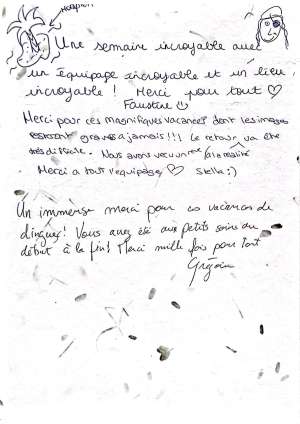 Une semaine incroyable avec
un équipage incroyable et un lieu
incroyable ! Merci pour tout ♡
Faustine ☺
Merci pour ces magnifiques vacances dont les images
resteront gravées a jamais !!! Le retour va être
très difficile. Nous avons vécu un rêve
Merci a tout l'equipage ♡ Stella :)
Un immense merci pour ces vacances de
dingues! Vous avez été aux petits soins du
début à la fin! Merci mille fois pour tout
Grégoire